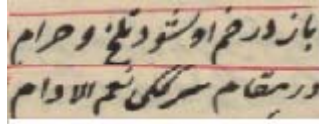 باز در خم او شود تلخ و حرام
در مقام سرکگی نعم الادام